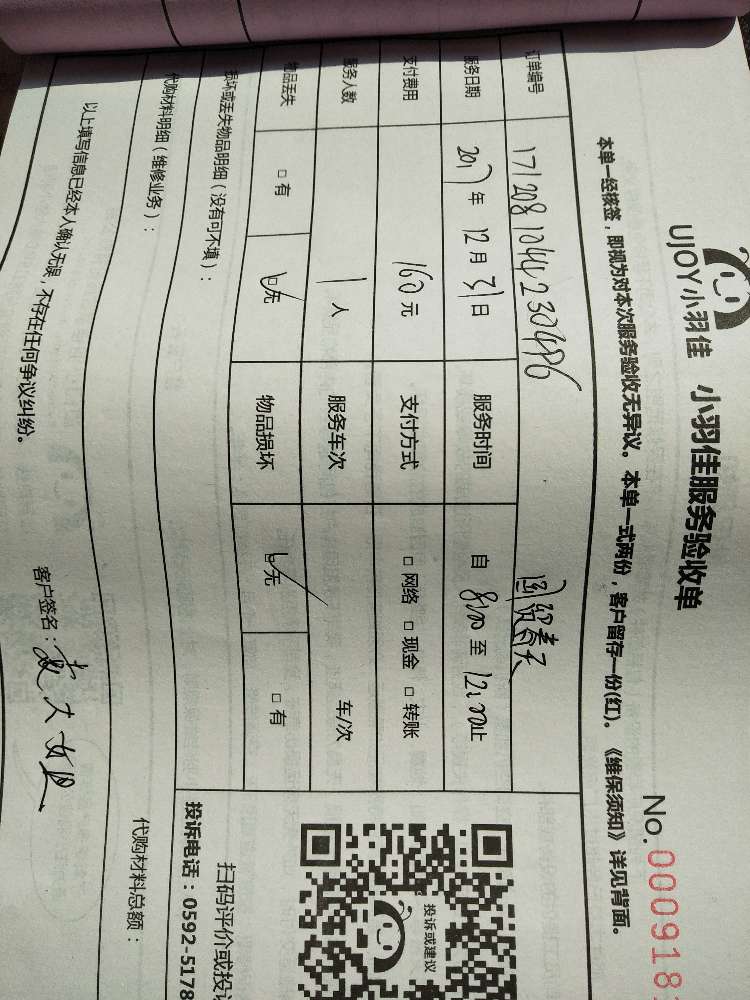 UJOY小羽佳 小羽佳服务验收单
No.000918
本单一经核签，即视为对本次服务验收无异议。本单一式两份，客户留存一份(红)。《维保须知》详见背面。
订单编号 1712081044230486
服务日期 2017年12月31日 服务时间 自8:00至12:00止
支付费用 160元 支付方式 □ 网络 □ 现金 □ 转账
服务人数 1人 服务车次 车/次
物品丢失 □ 有 □无 物品损坏 □无 □ 有
损坏或丢失物品明细（没有可不填）：
代购材料明细（维修业务）：
代购材料总额：
以上填写信息已经本人确认无误，不存在任何争议纠纷。
客户签名：
投诉或建议
扫码评价或投
投诉电话：0592-5178